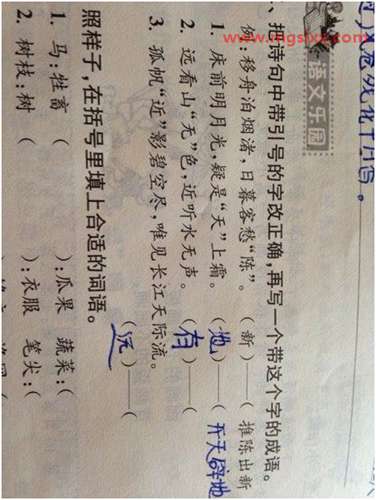 www.mgsxx.com
危戏化干吗。
语文乐园
、把诗句中带引号的字改正确,再写一个带这个字的成语。
例:移舟泊烟渚,日暮客愁“陈”。 (新)——( 推陈出新
1. 床前明月光,疑是“天”上霜。 (地)——( 开天辟地
2. 远看山“无”色,近听水无声。 (有)——(
3. 孤帆“近”影碧空尽,唯见长江天际流。 (远)——(
照样子,在括号里填上合适的词语。
1. 马:牲畜 ( ):瓜果 蔬菜:(
2. 树枝:树 ( ):衣服 笔尖:(